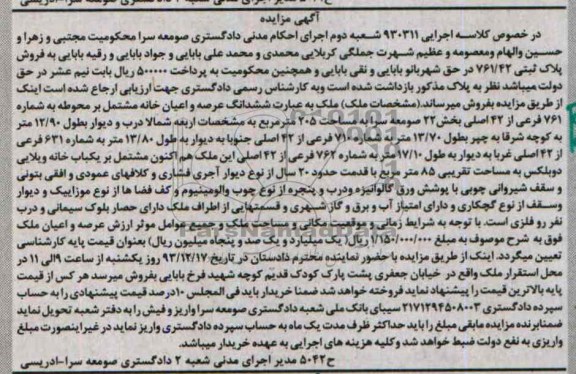 آگهی مزایده
در خصوص کلاسه اجرایی 930311 شعبه دوم اجرای احکام مدنی دادگستری صومعه سرا محکومیت مجتبی و زهرا و
حسین والهام ومعصومه و عظیم شهرت جملگی کربلایی محمدی و محمد علی بابایی و جواد بابایی و رقیه بابایی به فروش
پلاک ثبتی 761/42 در حق شهربانو بابایی و نقی بابایی و همچنین محکومیت به پرداخت 50000 ریال بابت نیم عشر در حق
دولت میباشد نظر به پلاک مذکور بازداشت شده است وبه کارشناس رسمی دادگستری جهت ارزیابی ارجاع شده است اینک
از طریق مزایده بفروش میرساند.(مشخصات ملک) ملک به عبارت ششدانگ عرصه و اعیان خانه مشتمل بر محوطه به شماره
761 فرعی از 42 اصلی بخش22 صومعه سرا به مساحت 205 مترمربع به مشخصات اربعه شمالا درب و دیوار بطول 12/90 متر
به کوچه شرقا به چپر بطول 13/70 متر به شماره 710 فرعی از 42 اصلی جنوبا به دیوار بطول 13/80 متر به شماره 631 فرعی
از 42 اصلی غربا به دیوار به طول 17/10 متر به شماره 762 فرعی از 42 اصلی این ملک هم اکنون مشتمل بر یکباب خانه ویلایی
دوبلکس به مساحت تقریبی 85 متر مربع با قدمت حدود 20 سال از نوع دیوار آجری فشاری و کلافهای عمودی و افقی بتونی
و سقف شیروانی چوبی با پوشش ورق گالوانیزه ودرب و پنجره از نوع چوب والومینیوم و کف فضا ها از نوع موزاییک و دیوار
وسقف از نوع گچکاری و دارای امتیاز آب و برق و گاز شهری و قسمتهایی از اطراف ملک دارای حصار بلوک سیمانی و درب
نفر رو فلزی است. با توجه به شرایط زمانی و موقعیت مکانی و مساحت و جمیع عوامل موثر ارزش عرصه و اعیان ملک
فوق به شرح موصوف به مبلغ 1/150/000/000 ریال( یک میلیارد و یک صد و پنجاه میلیون ریال) بعنوان قیمت پایه کارشناسی
تعیین میگردد. اینک از طریق مزایده با حضور نماینده محترم دادستان در تاریخ 93/12/17 روز یکشنبه از ساعت 9الی 11 در
محل استقرار ملک واقع در خیابان جمعفری پشت پارک کودک قدیم کوچه شهید فرخ بابایی بفروش میرسد هر کس از قیمت
پایه بالاترین قیمت را پیشنهاد نماید فروخته خواهد شد ضمنا خریدار باید فی المجلس 10درصد قیمت پیشنهادی را به حساب
سپرده دادگستری 2171294508003 سیبای بانک ملی شعبه دادگستری صومعه سرا واریز و فیش را به دفتر شعبه تحویل نماید
ضمنابرنده مزایده مابقی مبلغ را باید حداکثر ظرف مدت یک ماه به حساب سپرده دادگستری واریز نماید در غیراینصورت مبلغ
واریزی به نفع دولت ضبط خواهد شد وکلیه هزینه های اجرایی به عهده خریدار میباشد.
ح5042 مدیر اجرای مدنی شعبه 2 دادگستری صومعه سرا-ادریسی